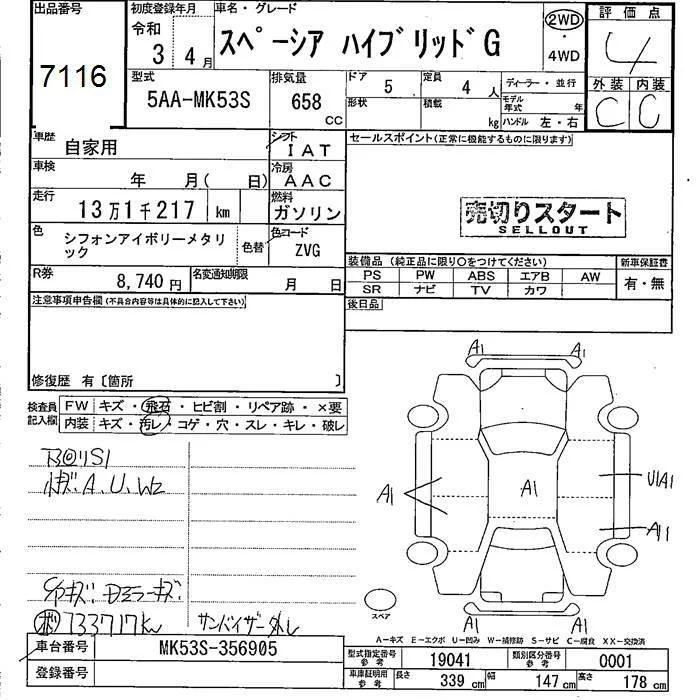 出品番号
7116
初度登録年月
令和
3年 4月
車名・グレード
スペーシア ハイブリッドG
2WD
・
4WD
評価点
4
外装 内装
C C
型式
5AA-MK53S
排気量
658
cc
ドア
5
定員
4人
形状
積載
kg
ディーラー・並行
モデル年式 年
ハンドル 左・右
車歴
自家用
シフト
IAT
車検
年 月( 日)
冷房
AAC
走行
13万1千217 km
燃料
ガソリン
色
シフォンアイボリーメタリック
色替
色コード
ZVG
R券
8,740円
名変通知期限
月 日
セールスポイント(正常に機能するものに限ります)
売切りスタート
SELLOUT
装備品 (純正品に限り○をつけてください)
PS PW ABS エアB AW
SR ナビ TV カワ
新車保証書
有・無
後日品
注意事項申告欄(不具合内容等は具体的に記入して下さい)
修復歴 有〔箇所 〕
検査員記入欄
FW キズ・飛石・ヒビ割・リペア跡・×要
内装 キズ・汚レ・コゲ・穴・スレ・キレ・破レ
A、U、W2
133717km
サンバイザー外レ
A1 A1
A1
A1
U1A1
A1
A1 A1
スペア
A-キズ E-エクボ U-凹み W-補修跡 S-サビ C-腐食 XX-交換済
車台番号
MK53S-356905
登録番号
型式指定番号 参考
19041
類別区分番号 参考
0001
車庫証明用 参考
長さ 339cm 幅 147cm 高さ 178cm